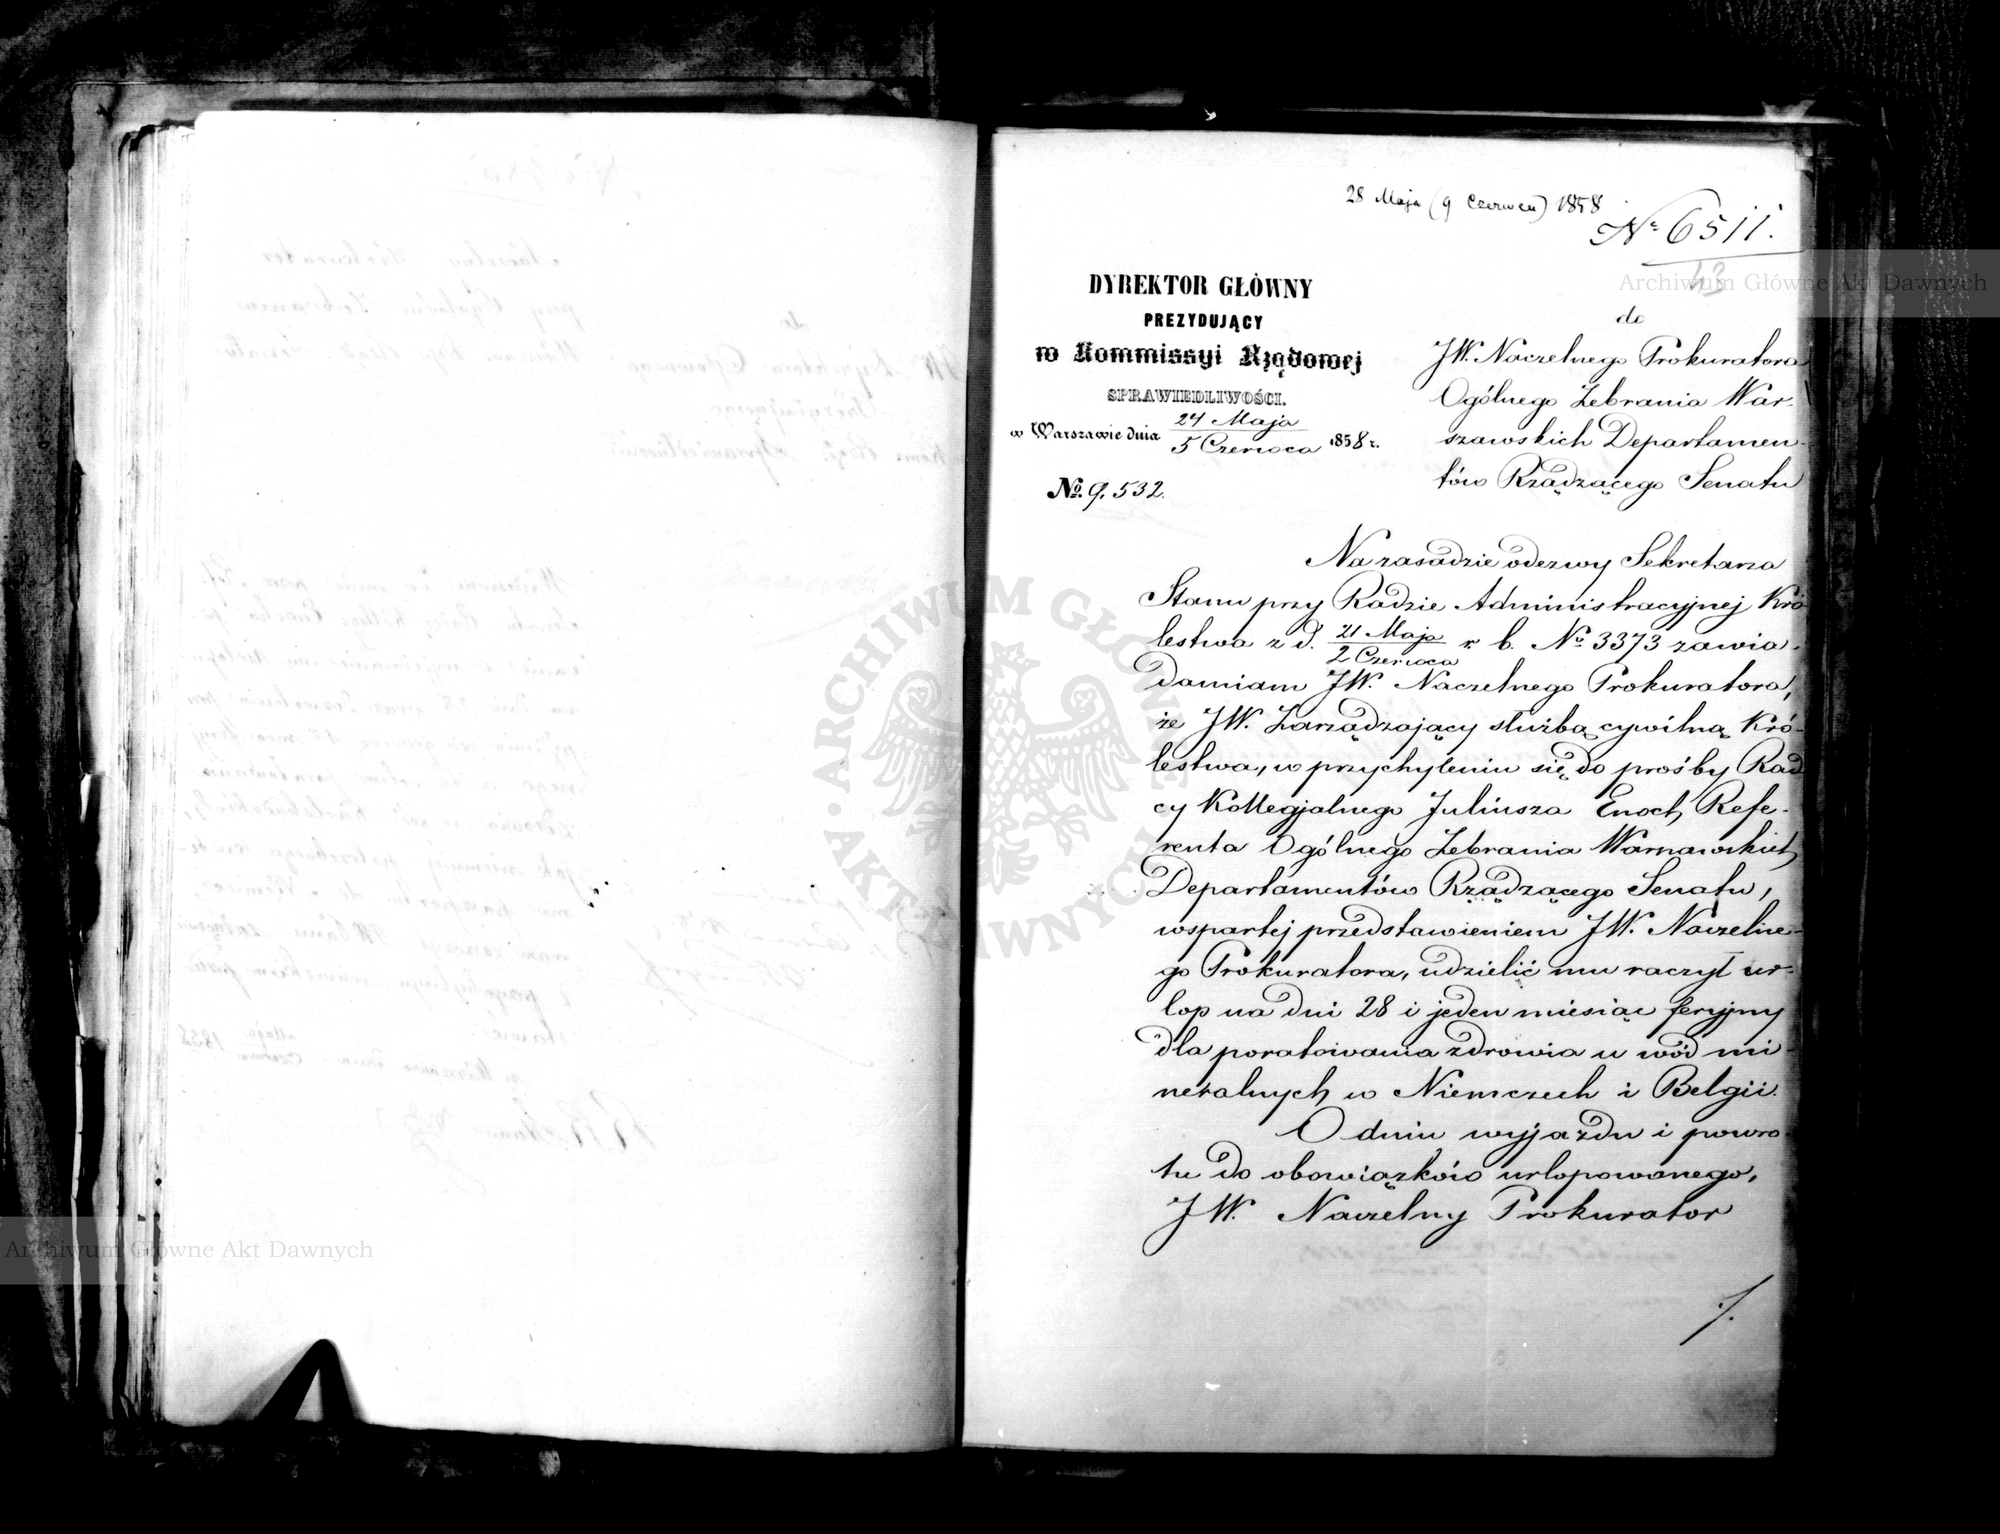 28 Maja (9 Czerwca) 1858
Nr 6511.
43
DYREKTOR GŁÓWNY
PREZYDUJĄCY
w Kommissyi Rządowej
SPRAWIEDLIWOŚCI.
w Warszawie dnia 24 Maja / 5 Czerwca 1858 r.
No. 9.532.
do
JW. Naczelnego Prokuratora
Ogólnego Zebrania War-
szawskich Departamen-
tów Rządzącego Senatu
Na zasadzie odezwy Sekretarza
Stanu przy Radzie Administracyjnej Kró-
lestwa z d. 21 Maja / 2 Czerwca r. b. No 3373 zawia-
damiam JW. Naczelnego Prokuratora,
że JW. Zarządzający służbą cywilną Kró-
lestwa, w przychyleniu się do prośby Rad-
cy Kollegjalnego Juliusza Enoch, Refe-
renta Ogólnego Zebrania Warszawskich
Departamentów Rządzącego Senatu,
wspartej przedstawieniem JW. Naczelne-
go Prokuratora, udzielić mu raczył ur-
lop na dni 28 i jeden miesiąc feryjny
dla poratowania zdrowia u wód mi-
neralnych w Niemczech i Belgii.
O dniu wyjazdu i powro-
tu do obowiązków urlopowanego,
JW. Naczelny Prokurator
./.
Archiwum Główne Akt Dawnych
Archiwum Główne Akt Dawnych